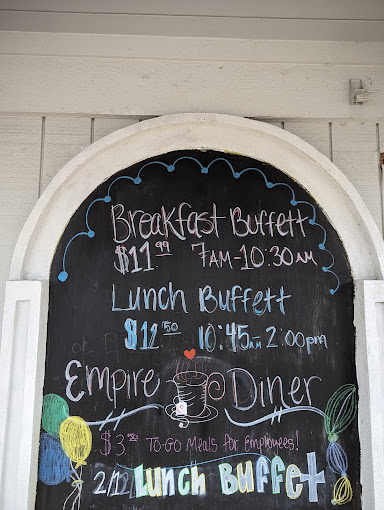 Breakfast Buffett
$11.99 7AM-10:30AM
Lunch Buffett
$12.50 10:45AM 2:00pm
Empire Diner
$3.50 To-Go Meals for Employees!
2/12 Lunch Buffet